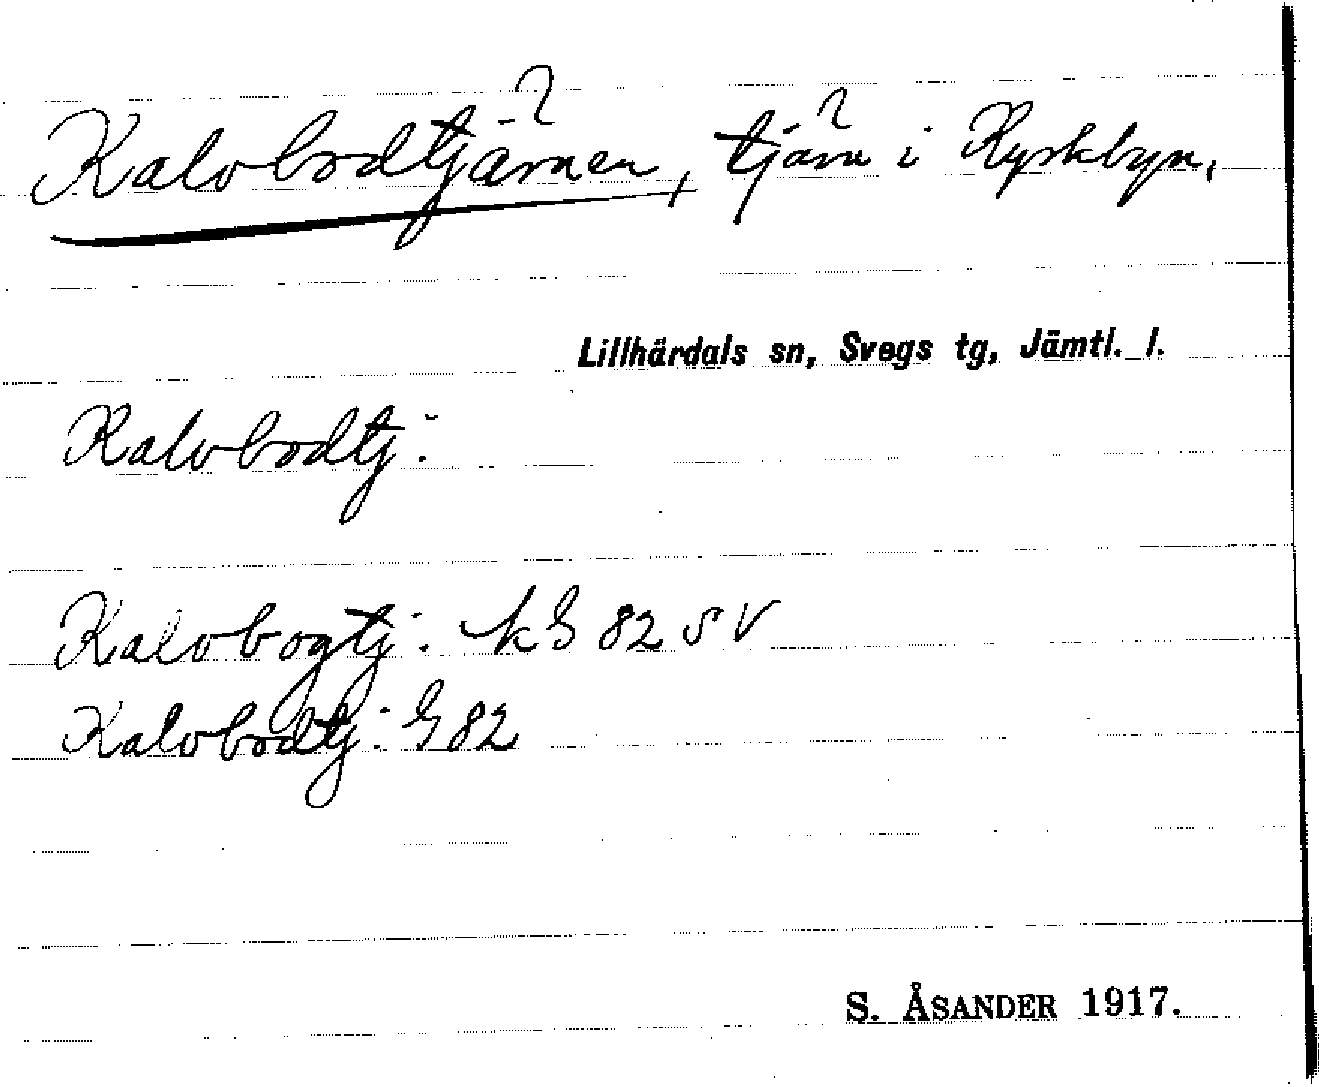 Kalvbodtjärnen, tjärn i Kyrkbyn,
Lillhärdals sn, Svegs tg, Jämtl. l.
Kalvbodtj:
Kalvbogtj: kG 82 SV
Kalvbodtj: G 82
S. ÅSANDER 1917.